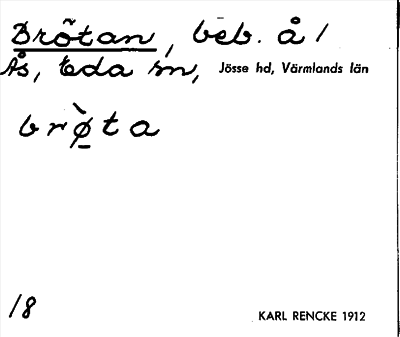 Brõtan, beb. å /
Ås, Eda sn, Jösse hd, Värmlands län
brø̱̀ta
18 KARL RENCKE 1912